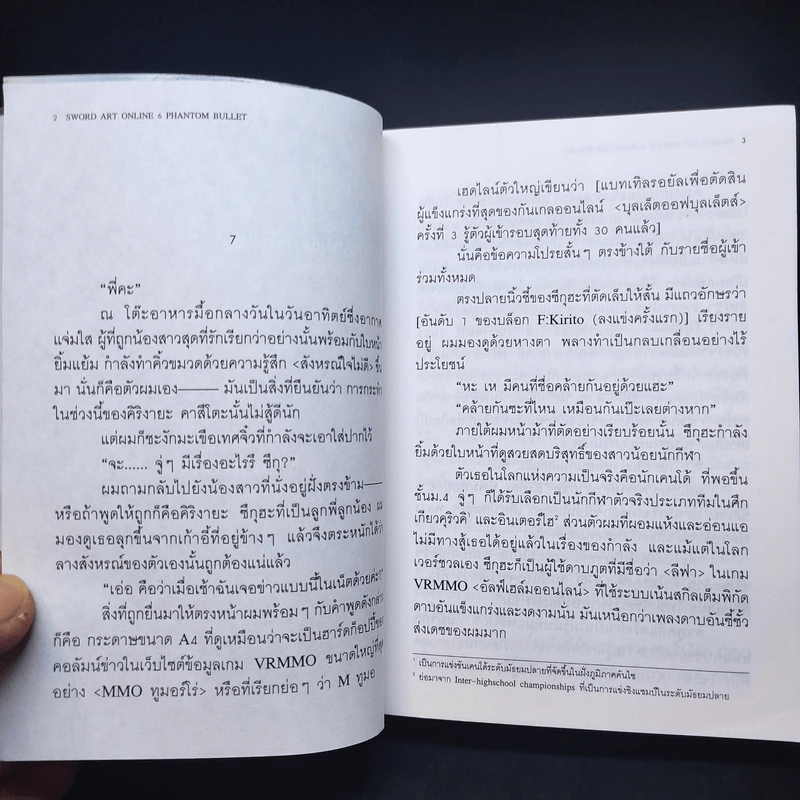 2 SWORD ART ONLINE 6 PHANTOM BULLET
7
“พี่คะ”
ณ โต๊ะอาหารมื้อกลางวันในวันอาทิตย์ซึ่งอากาศ
แจ่มใส ผู้ที่ถูกน้องสาวสุดที่รักเรียกว่าอย่างนั้นพร้อมกับใบหน้า
ยิ้มแย้ม กำลังทำคิ้วขมวดด้วยความรู้สึก <สังหรณ์ใจไม่ดี> ขึ้น
มา นั่นก็คือตัวผมเอง——— มันเป็นสิ่งที่ยืนยันว่า การกระทำ
ในช่วงนี้ของคิริงายะ คาสึโตะนั้นไม่สู้ดีนัก
แต่ผมก็ชะงักมะเขือเทศจิ๋วที่กำลังจะเอาใส่ปากไว้
“จะ...... จู่ๆ มีเรื่องอะไรรึ ซึกุ?”
ผมถามกลับไปยังน้องสาวที่นั่งอยู่ฝั่งตรงข้าม——
หรือถ้าพูดให้ถูกก็คือคิริงายะ ซึกุฮะที่เป็นลูกพี่ลูกน้อง ผม
มองดูเธอลุกขึ้นจากเก้าอี้ที่อยู่ข้างๆ แล้วจึงตระหนักได้ว่า
ลางสังหรณ์ของตัวเองนั้นถูกต้องแน่แล้ว
“เอ่อ คือว่าเมื่อเช้าฉันเจอข่าวแบบนี้ในเน็ตด้วยค่ะ”
สิ่งที่ถูกยื่นมาให้ตรงหน้าผมพร้อมๆ กับคำพูดดังกล่าว
ก็คือ กระดาษขนาด A4 ที่ดูเหมือนว่าจะเป็นฮาร์ดก็อปปี้ของ
คอลัมน์ข่าวในเว็บไซต์ข้อมูลเกม VRMMO ขนาดใหญ่ที่สุด
อย่าง <MMO ทูมอร์โร่> หรือที่เรียกย่อๆ ว่า M ทูมอ
3
เฮดไลน์ตัวใหญ่เขียนว่า [แบทเทิลรอยัลเพื่อตัดสิน
ผู้แข็งแกร่งที่สุดของกันเกลออนไลน์ <บุลเล็ตออฟบุลเล็ตส์>
ครั้งที่ 3 รู้ตัวผู้เข้ารอบสุดท้ายทั้ง 30 คนแล้ว]
นั่นคือข้อความโปรยสั้นๆ ตรงข้างใต้ กับรายชื่อผู้เข้า
ร่วมทั้งหมด
ตรงปลายนิ้วชี้ของซึกุฮะที่ตัดเล็บให้สั้น มีแถวอักษรว่า
[อันดับ 1 ของบล็อก F:Kirito (ลงแข่งครั้งแรก)] เรียงราย
อยู่ ผมมองดูด้วยหางตา พลางทำเป็นกลบเกลื่อนอย่างไร้
ประโยชน์
“หะ เห มีคนที่ชื่อคล้ายกันอยู่ด้วยแฮะ”
“คล้ายกันซะที่ไหน เหมือนกันเป๊ะเลยต่างหาก”
ภายใต้ผมหน้าม้าที่ตัดอย่างเรียบร้อยนั้น ซึกุฮะกำลัง
ยิ้มด้วยใบหน้าที่ดูสวยสดบริสุทธิ์ของสาวน้อยนักกีฬา
ตัวเธอในโลกแห่งความเป็นจริงคือนักเคนโด้ ที่พอขึ้น
ชั้นม.4 จู่ๆ ก็ได้รับเลือกเป็นนักกีฬาตัวจริงประเภททีมในศึก
เกียวคุริวคิ¹ และอินเตอร์ไฮ² ส่วนตัวผมที่ผอมแห้งและอ่อนแอ
ไม่มีทางสู้เธอได้อยู่แล้วในเรื่องของกำลัง และแม้แต่ในโลก
เวอร์ชวลเอง ซึกุฮะก็เป็นผู้ใช้ดาบภูตที่มีชื่อว่า <ลีฟา> ในเกม
VRMMO <อัลฟ์เฮล์มออนไลน์> ที่ใช้ระบบเน้นสกิลเต็มพิกัด
ดาบอันแข็งแกร่งและงดงามนั่น มันเหนือกว่าเพลงดาบอันซี้ซั้ว
ส่งเดชของผมมาก
¹ เป็นการแข่งขันเคนโด้ระดับมัธยมปลายที่จัดขึ้นในฝั่งภูมิภาคคันไซ
² ย่อมาจาก Inter-highschool championships ที่เป็นการแข่งชิงแชมป์ในระดับมัธยมปลาย